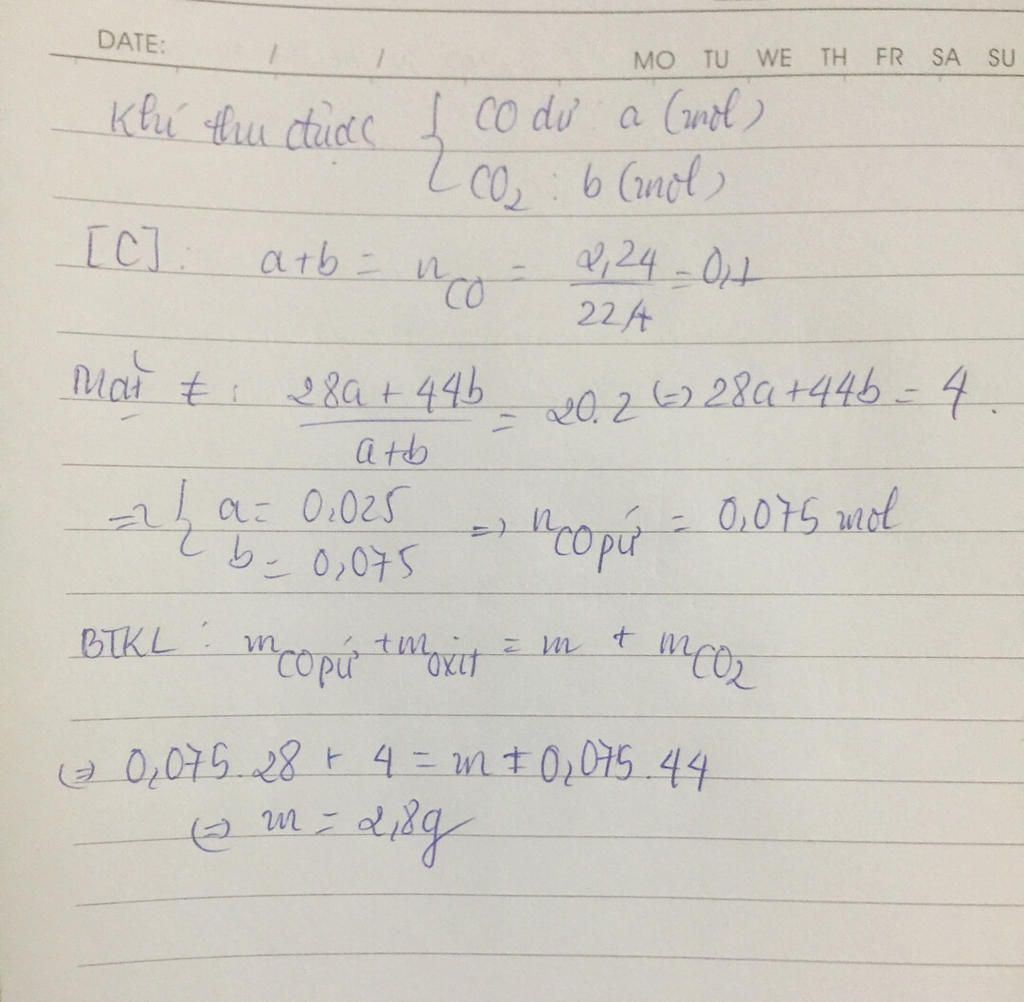 DATE: / / MO TU WE TH FR SA SU
Khí thu được { CO dư a (mol)
CO₂ : b (mol)
[C]: a+b = n_CO = 2,24/22,4 = 0,1
Mặt ≠ : (28a + 44b)/(a+b) = 20.2 (=) 28a+44b = 4.
=> { a = 0,025
b = 0,075 => n_CO pứ = 0,075 mol
BTKL : m_CO pứ + m_oxit = m + m_CO₂
(=) 0,075.28 + 4 = m + 0,075.44
(=) m = 2,8g